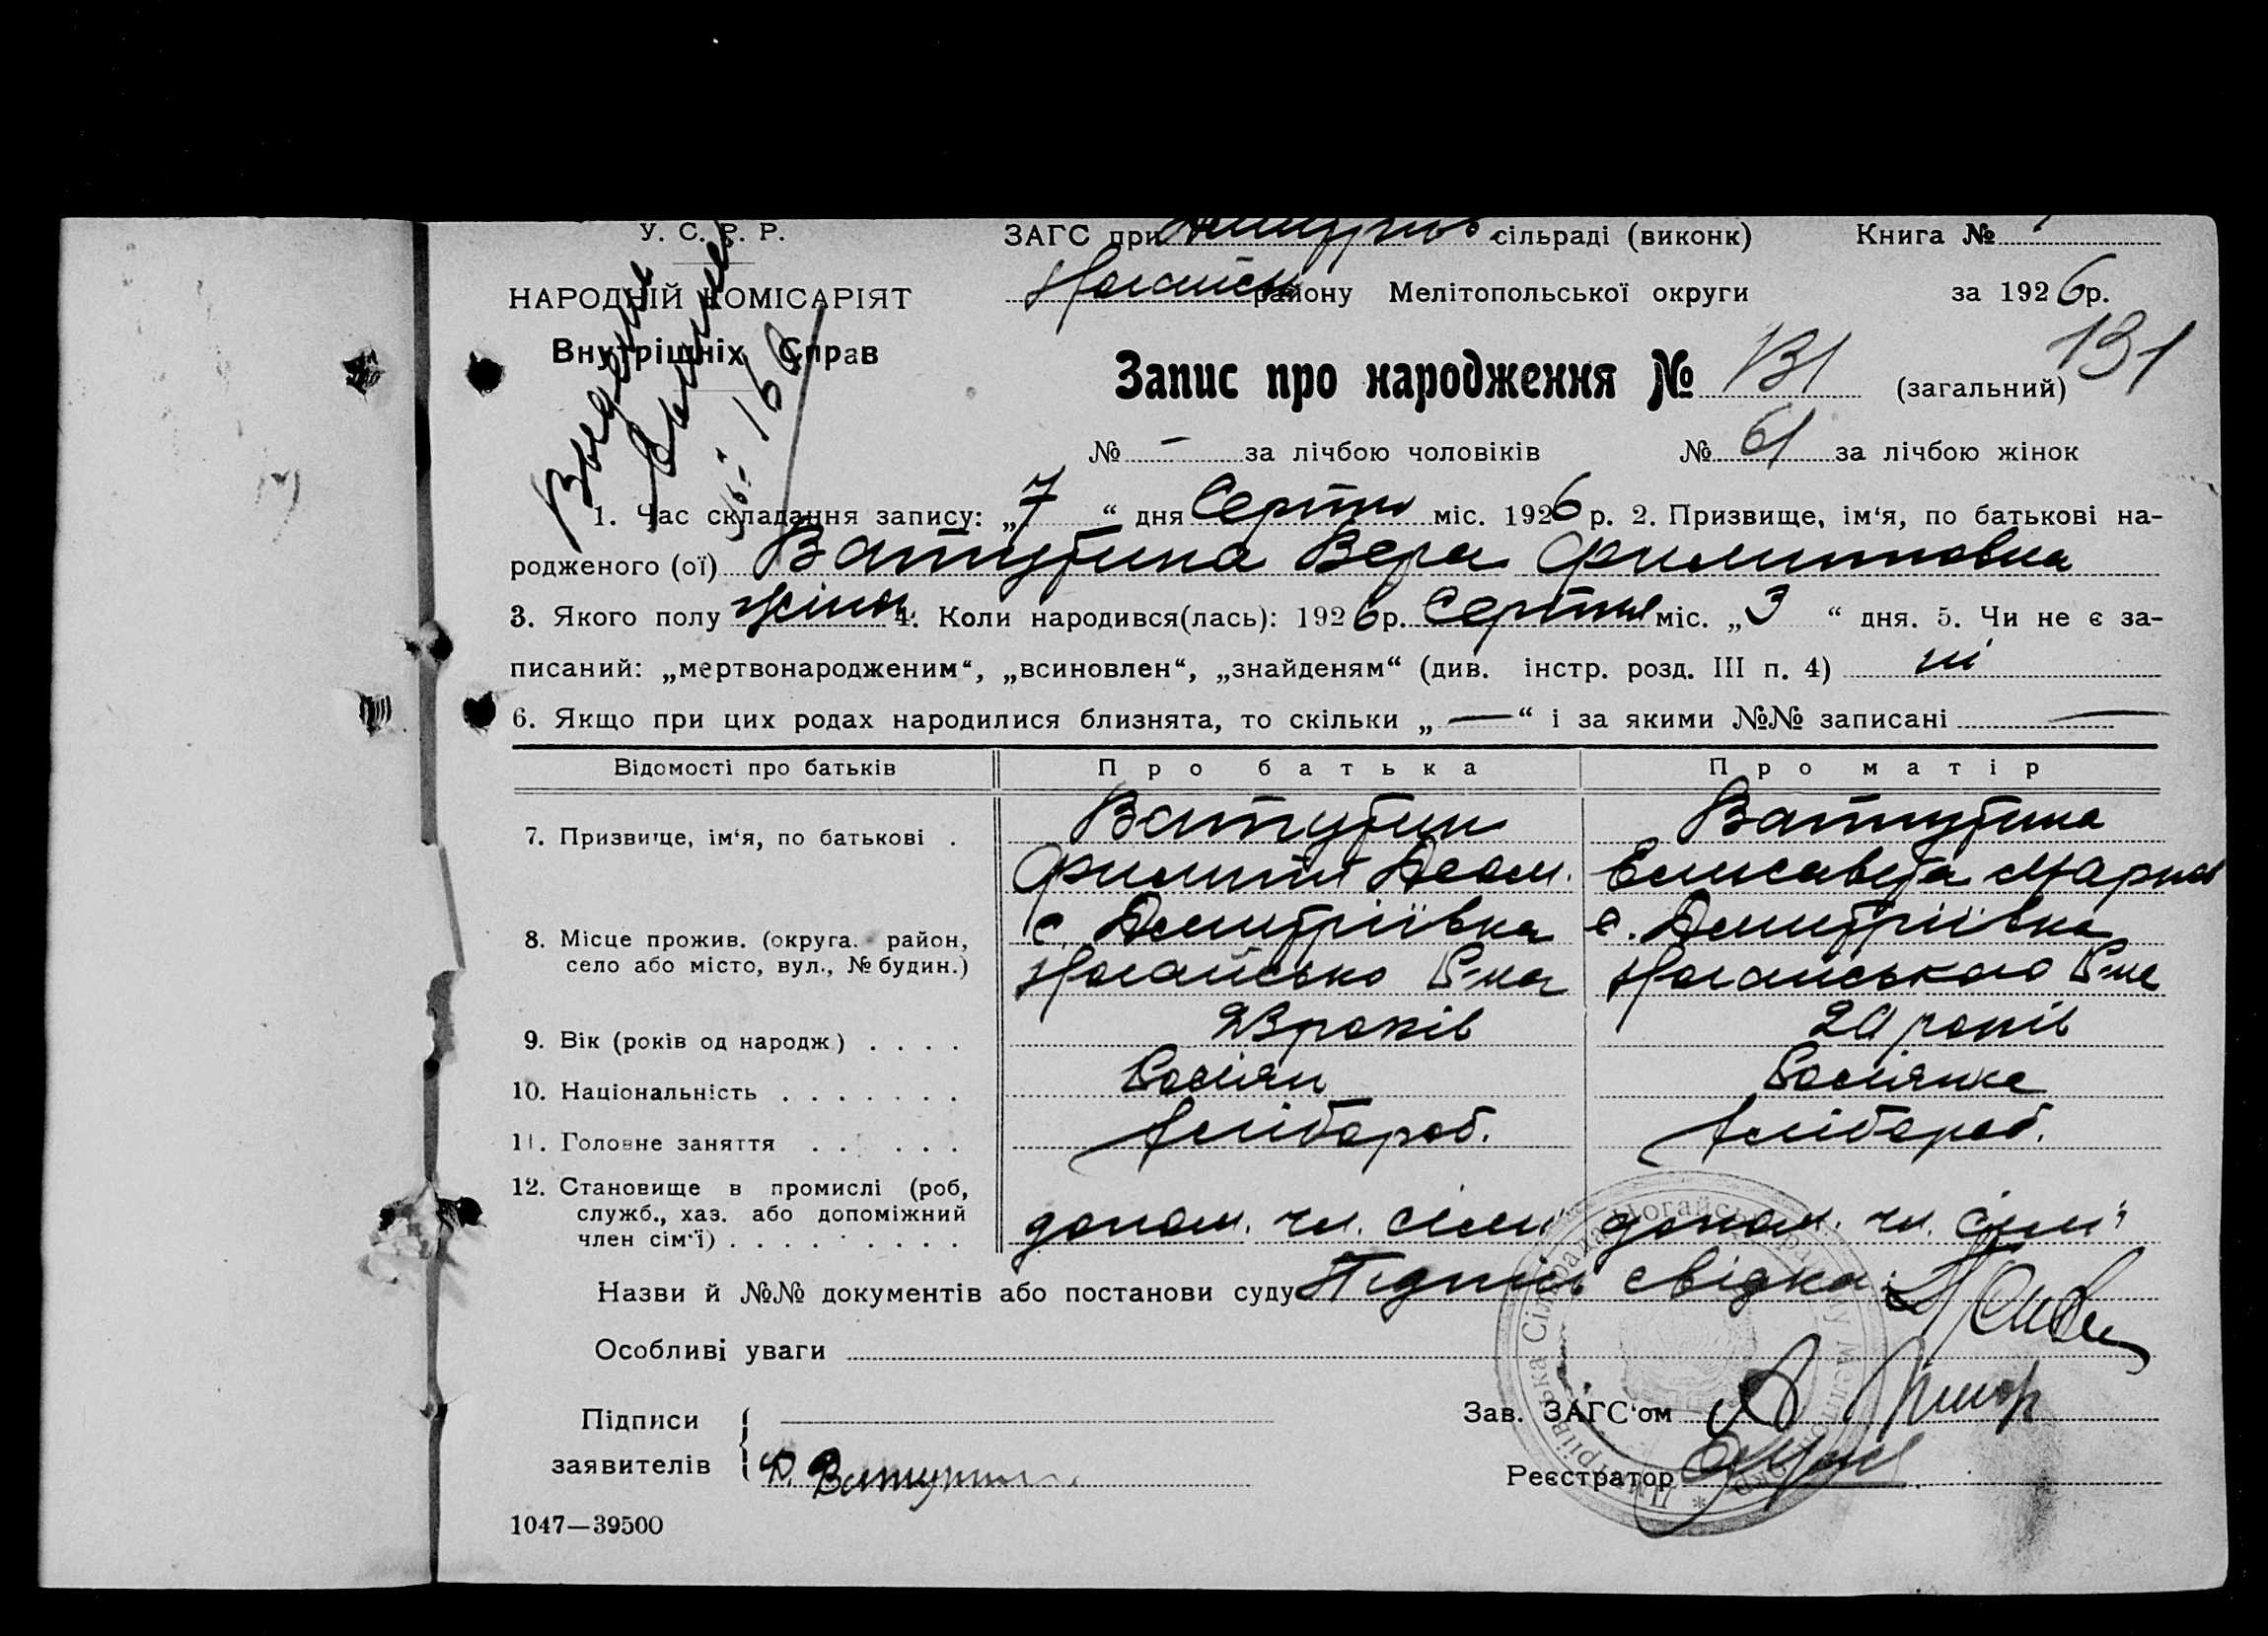 У. С. Р. Р.
НАРОДНІЙ КОМІСАРІЯТ
Внутрішніх Справ
ЗАГС при сільраді (виконк) Книга №
Ногайськ району Мелітопольської округи за 1926 р.
Запис про народження № 131 (загальний) 131
№ — за лічбою чоловіків № 61 за лічбою жінок
1. Час складання запису: „7“ дня Серпня міс. 1926 р. 2. Призвище, ім‘я, по батькові на-
родженого (ої) Ватутина Вера Филиповна
3. Якого полу жіноч. 4. Коли народився(лась): 1926 р. Серпня міс. „3“ дня. 5. Чи не є за-
писаний: „мертвонародженим“, „всиновлен“, „знайденям“ (див. інстр. розд. III п. 4) ні
6. Якщо при цих родах народилися близнята, то скільки „—“ і за якими №№ записані —
Відомості про батьків Про батька Про матір
7. Призвище, ім‘я, по батькові . Ватутин Ватутина
Филипп Елисавета Марков
8. Місце прожив. (округа. район, село або місто, вул., № будин.) с. Демитріївка с. Демитріївка
Ногайсько Р-на Ногайського Р-на
9. Вік (років од народж) . . . . 23 років 20 років
10. Національність . . . . . . . Росіян Росіянка
11. Головне заняття . . . . . . хлібороб. хлібороб.
12. Становище в промислі (роб, служб., хаз. або допоміжний член сім‘ї) . . . . . . . . . допом. чл. сімї допом. чл. сімї
Назви й №№ документів або постанови суду Підпись свідка:
Особливі уваги
Підписи заявителів Ф. Ватутин
Зав. ЗАГС‘ом
Реєстратор
1047—39500